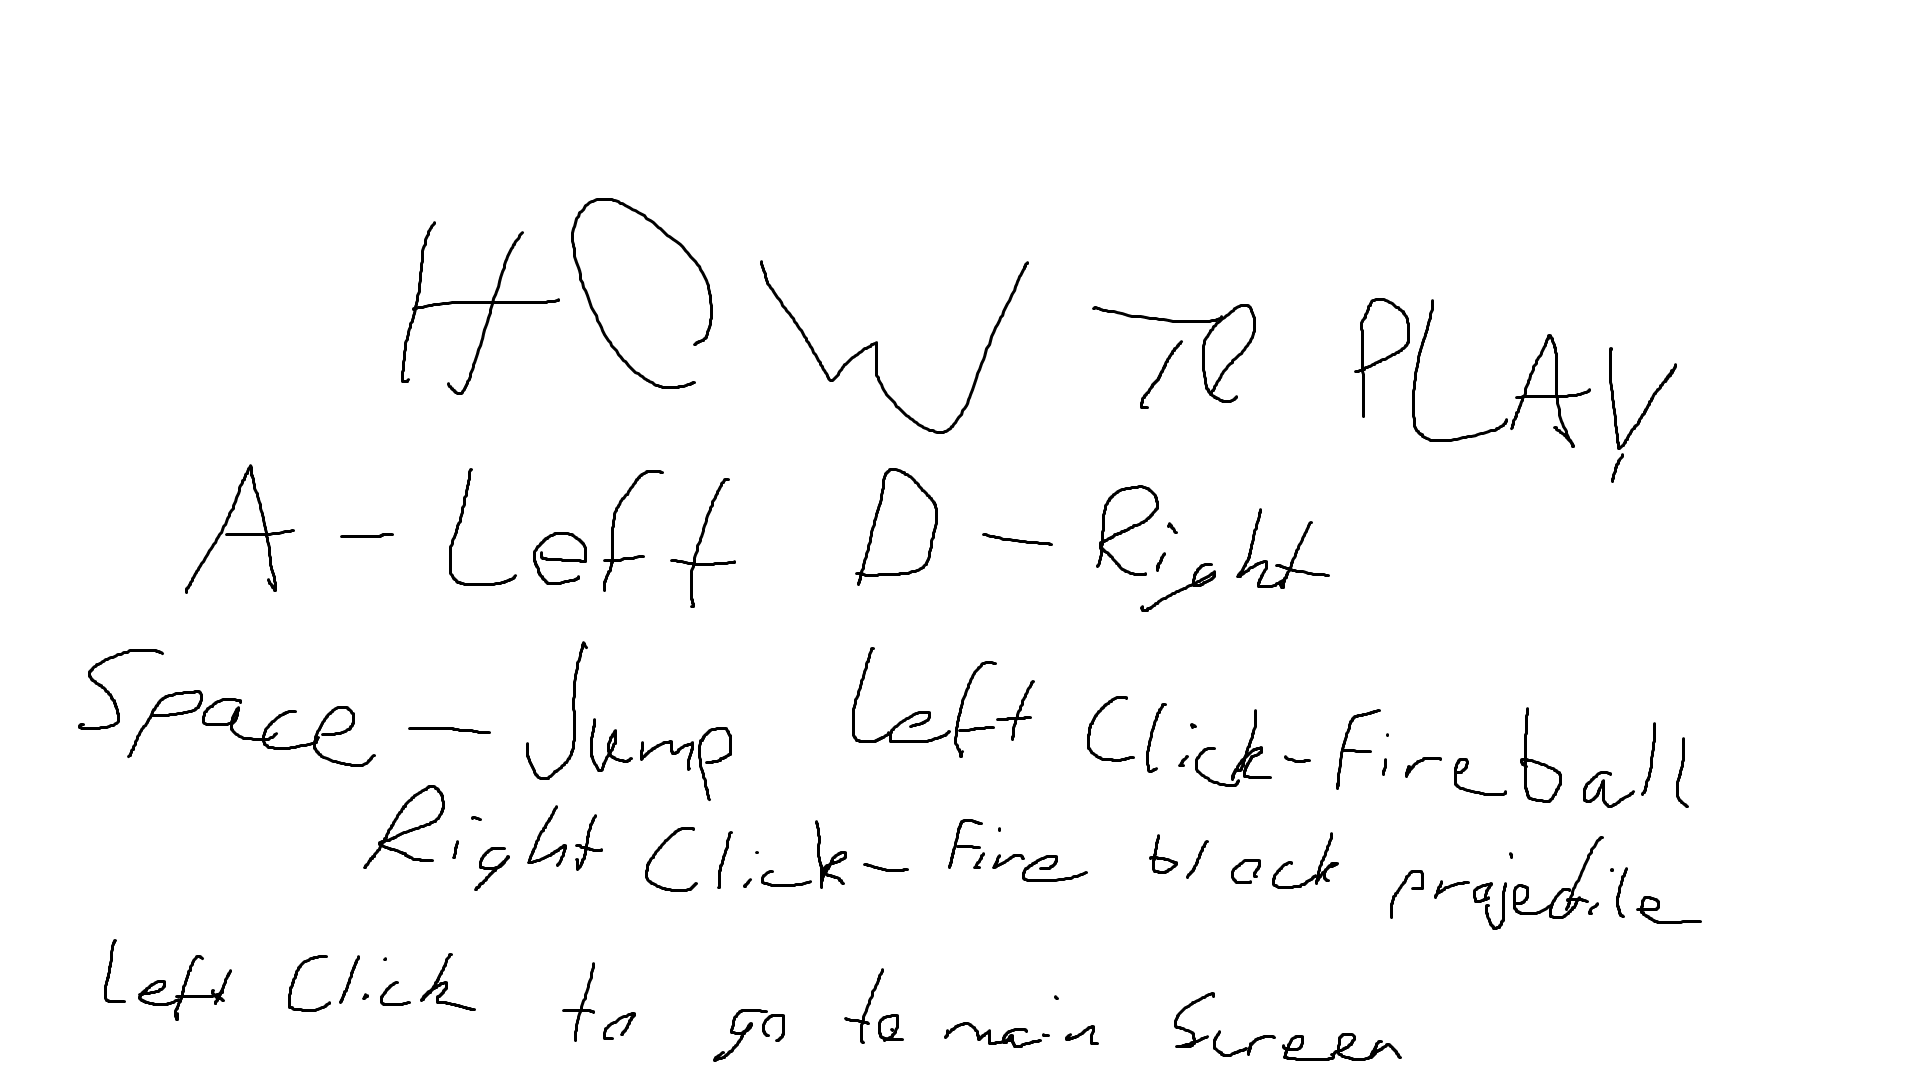 HOW TO PLAY
A - Left D - Right
Space - Jump Left Click - Fireball
Right Click - Fire block projectile
Left Click to go to main Screen